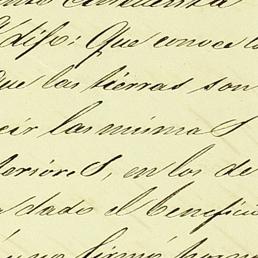 dijo: Que conoce l
Que las tierras son
cir las mismas
teriores, en los de
dado el beneficio
y no firmó, por